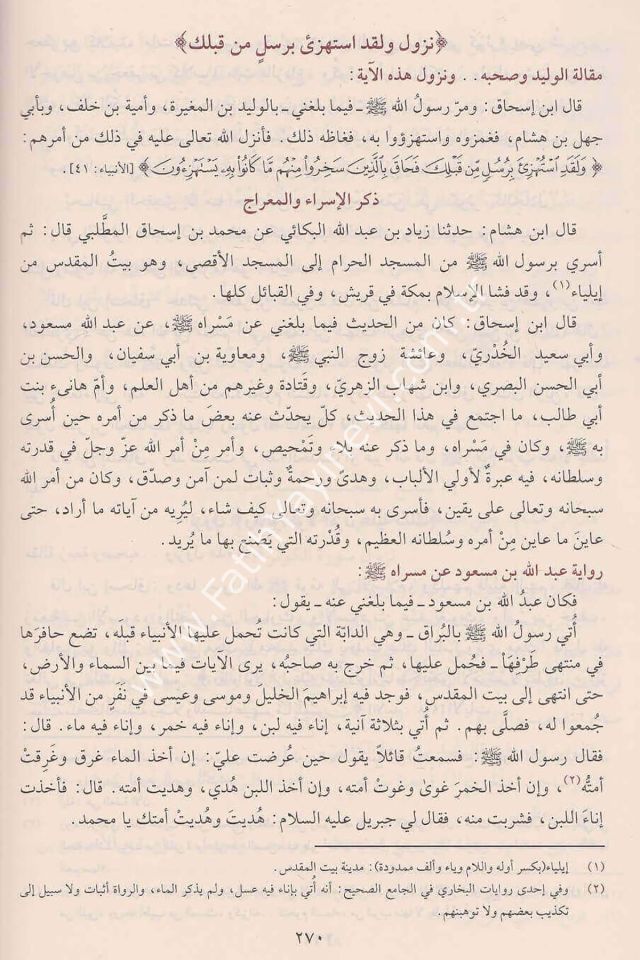 ﴿نزول ولقد استهزئ برسلٍ من قبلك﴾
مقالة الوليد وصحبه . . ونزول هذه الآية :
قال ابن إسحاق: ومرّ رسولُ الله ﷺ ـ فيما بلغني ـ بالوليد بن المغيرة، وأمية بن خلف، وبأبي
جهل بن هشام، فغمزوه واستهزؤوا به، فغاظه ذلك. فأنزل الله تعالى عليه في ذلك من أمرهم:
﴿ وَلَقَدِ ٱسْتُهْزِئَ بِرُسُلٍ مِّن قَبْلِكَ فَحَاقَ بِٱلَّذِينَ سَخِرُوا۟ مِنْهُم مَّا كَانُوا۟ بِهِۦ يَسْتَهْزِءُونَ ﴾ [الأنبياء: ٤١].
ذكر الإسراء والمعراج
قال ابن هشام: حدثنا زياد بن عبد الله البكائي عن محمد بن إسحاق المطَّلبي قال: ثم
أسري برسول الله ﷺ من المسجد الحرام إلى المسجد الأقصى، وهو بيتُ المقدس من
إيلياء(١)، وقد فشا الإسلام بمكة في قريش، وفي القبائل كلها.
قال ابن إسحاق: كان من الحديث فيما بلغني عن مَسْراه ﷺ، عن عبد الله مسعود،
وأبي سعيد الخُدْريّ، وعائشة زوج النبي ﷺ، ومعاوية بن أبي سفيان، والحسن بن
أبي الحسن البصري، وابن شهاب الزهريّ، وقَتادة وغيرهم من أهل العلم، وأمّ هانىء بنت
أبي طالب، ما اجتمع في هذا الحديث، كلّ يحدّث عنه بعضَ ما ذكر من أمره حين أُسرى
به ﷺ، وكان في مَسْراه، وما ذكر عنه بلاء وتَمْحيص، وأمر مِنْ أمر الله عزّ وجلّ في قدرته
وسلطانه، فيه عبرةٌ لأولي الألباب، وهدىً ورحمةٌ وثبات لمن آمن وصدّق، وكان من أمر الله
سبحانه وتعالى على يقين، فأسرى به سبحانه وتعالى كيف شاء، ليُريه من آياته ما أراد، حتى
عاينَ ما عاين مِنْ أمره وسُلطانه العظيم، وقُدْرته التي يَصْنع بها ما يُريد.
رواية عبد الله بن مسعود عن مسراه ﷺ:
فكان عبدُ الله بن مسعود ـ فيما بلغني عنه ـ يقول:
أُتي رسولُ الله ﷺ بالبُراق ـ وهي الدابّة التي كانت تُحمل عليها الأنبياء قبلَه، تضع حافرَها
في منتهى طَرْفِها ـ فحُمل عليها، ثم خرج به صاحبُه، يرى الآيات فيما بين السماء والأرض،
حتى انتهى إلى بيت المقدس، فوجد فيه إبراهيمَ الخليلَ وموسى وعيسى في نَفَر من الأنبياء قد
جُمعوا له، فصلَّى بهم. ثم أُتي بثلاثة آنية، إناء فيه لبن، وإناء فيه خمر، وإناء فيه ماء. قال:
فقال رسول الله ﷺ: فسمعتُ قائلاً يقول حين عُرضت عليّ: إن أخذ الماء غرق وغَرِقتْ
أمتُّه(٢)، وإن أخذ الخمرَ غوىٰ وغوتْ أمته، وإن أخذ اللبن هُدي، وهديت أمته. قال: فأخذت
إناءَ اللبن، فشربت منه، فقال لي جبريل عليه السلام: هُديتَ وهُديتْ أمتك يا محمد.
www.Fatihyayinevi.com.tr
(١) إيلياء(بكسر أوله واللام وياء وألف ممدودة): مدينة بيت المقدس.
(٢) وفي إحدى روايات البخاري في الجامع الصحيح: أنه أُتي بإناء فيه عسل، ولم يذكر الماء، والرواة أثبات ولا سبيل إلى
تكذيب بعضهم ولا توهينهم.
٢٧٠